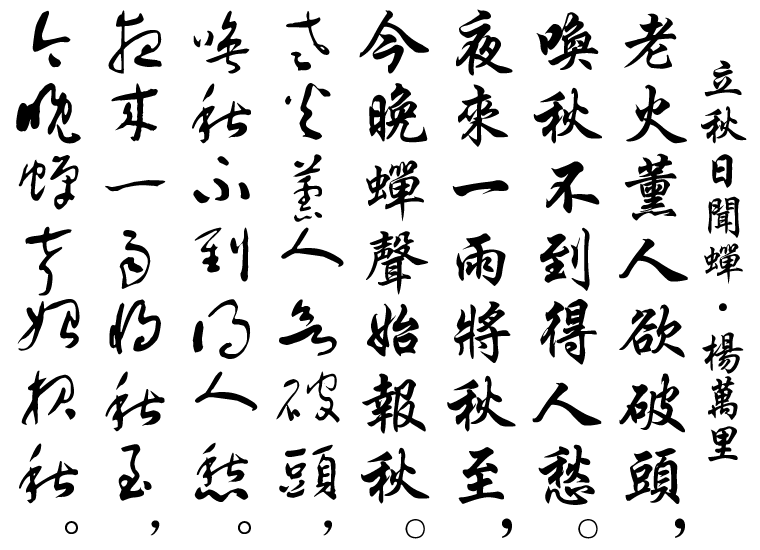 立秋日聞蟬·楊萬里
老火薰人欲破頭，
喚秋不到得人愁。
夜來一雨將秋至，
今晚蟬聲始報秋。
老火薰人欲破頭，
喚秋不到得人愁。
夜來一雨將秋至，
今晚蟬聲始報秋。